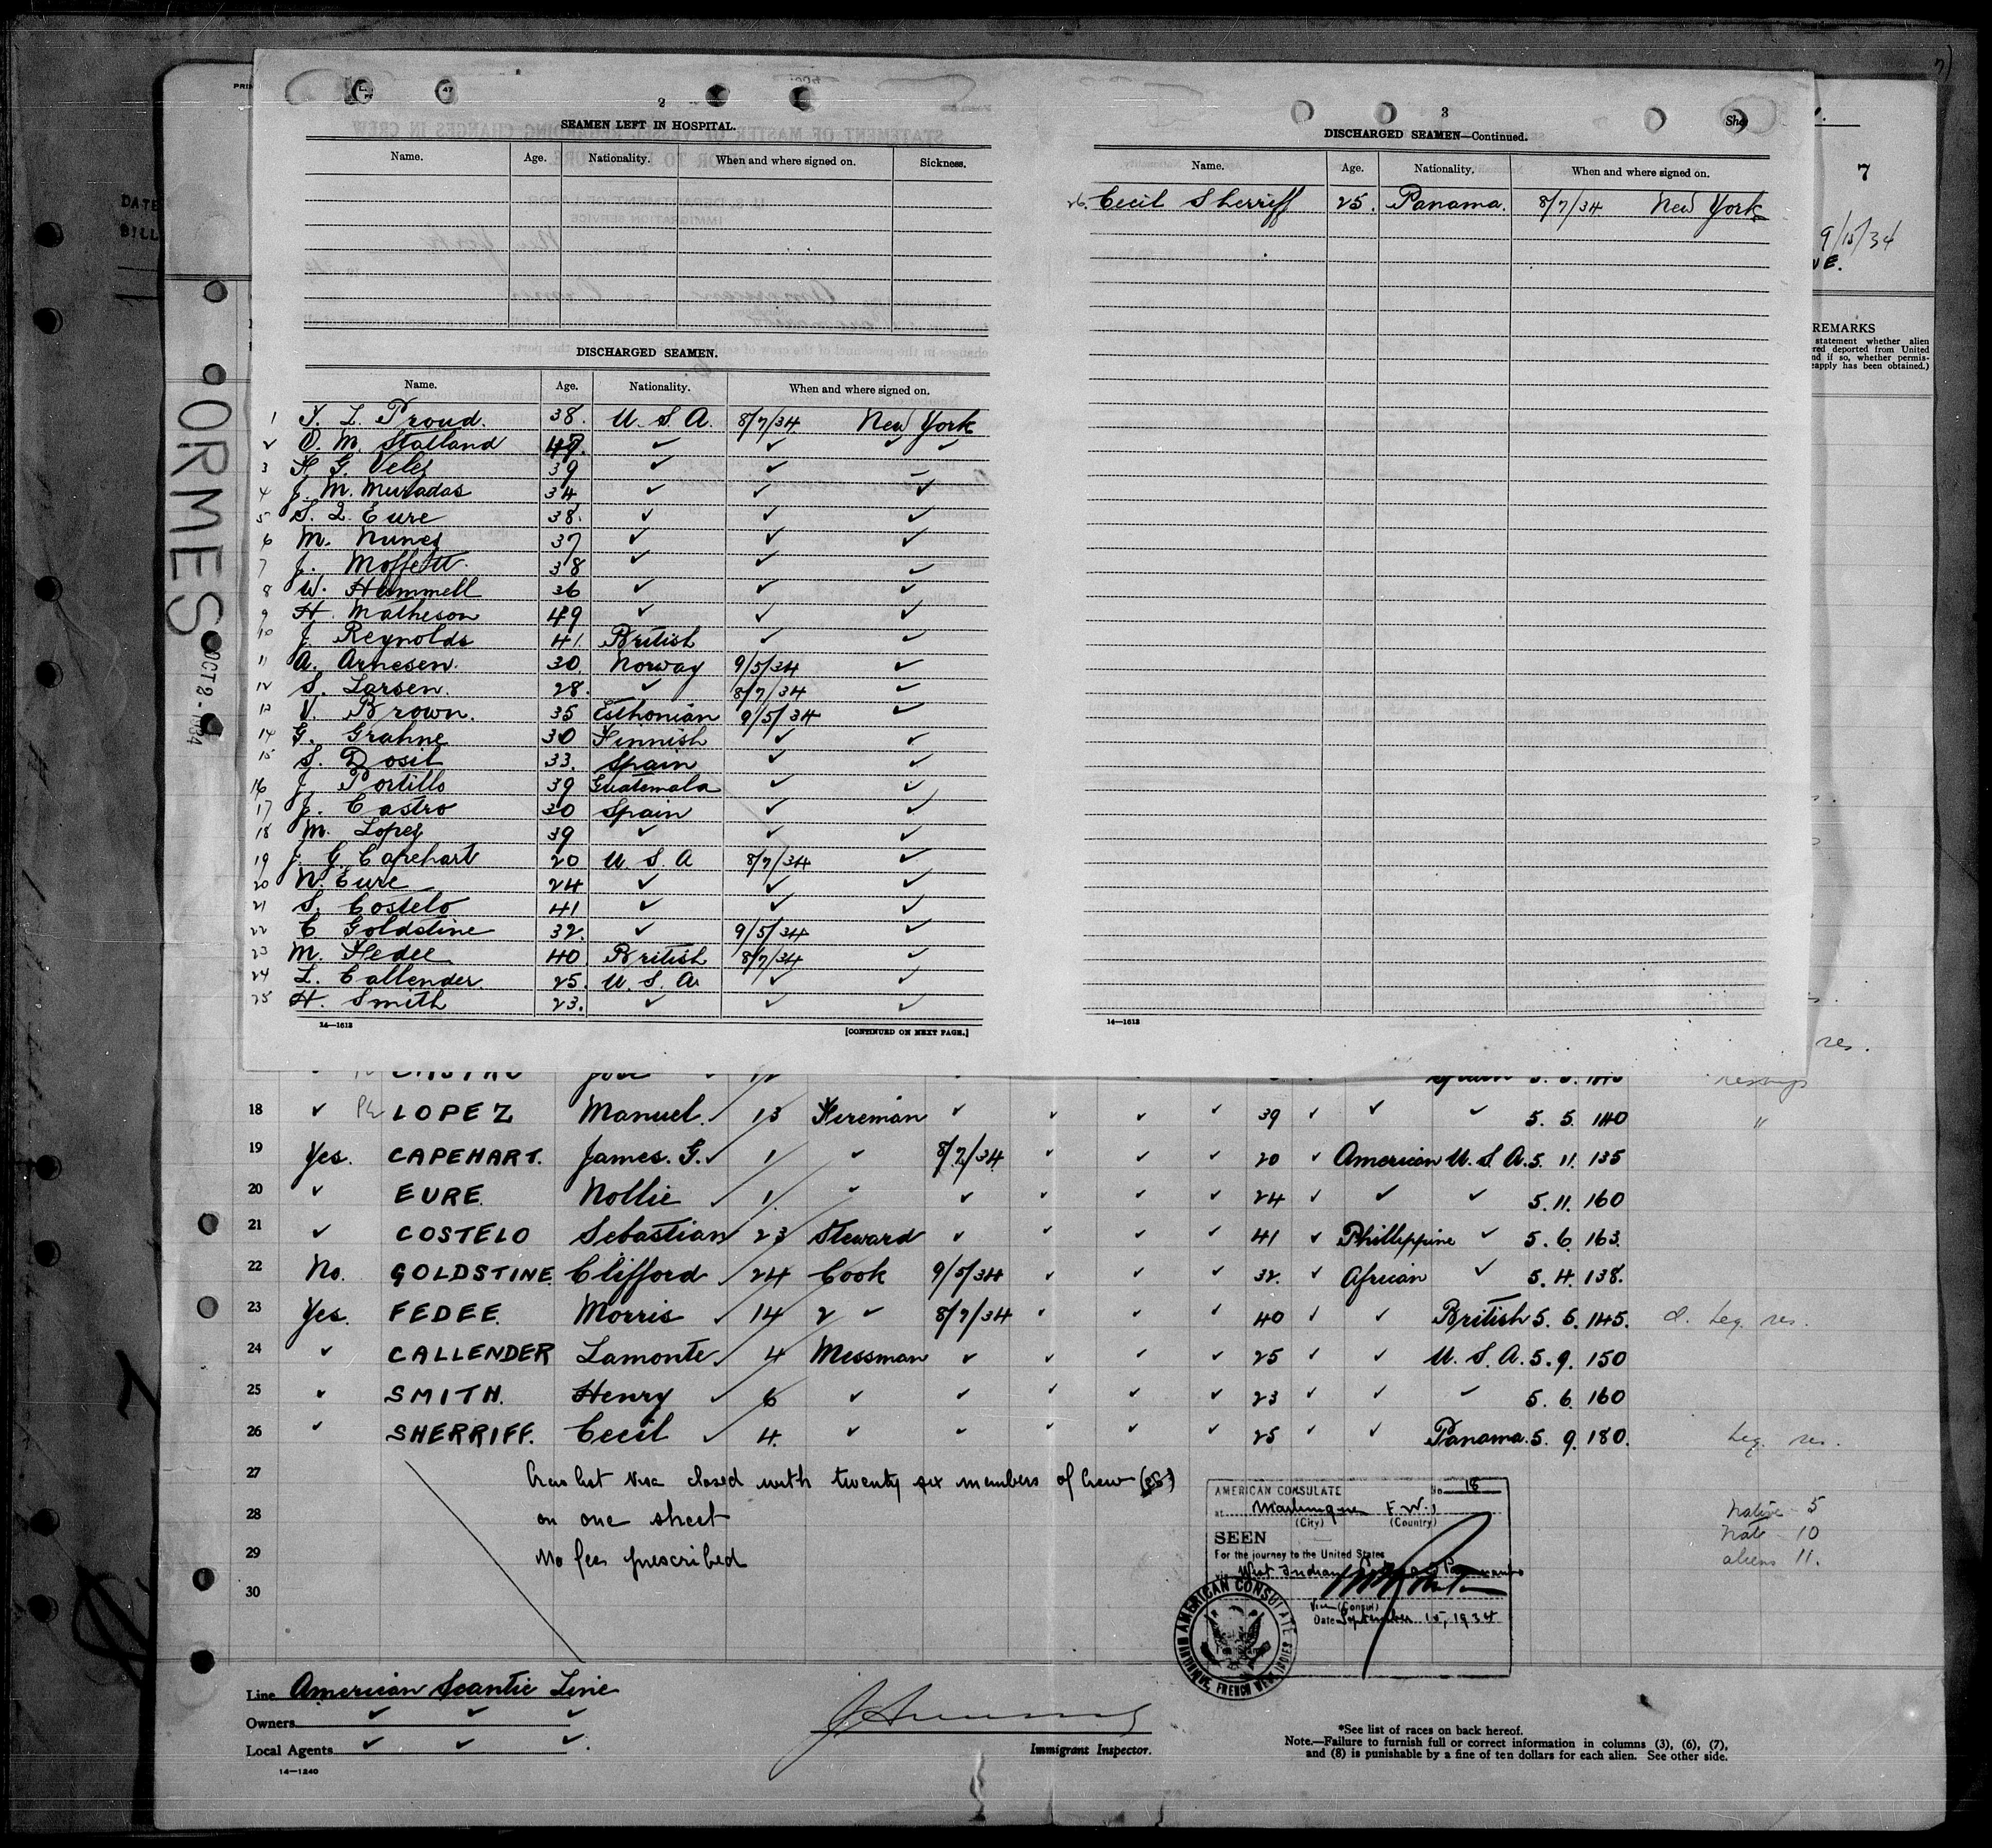 2
SEAMEN LEFT IN HOSPITAL.
Name. Age. Nationality. When and where signed on. Sickness.
DISCHARGED SEAMEN.
Name. Age. Nationality. When and where signed on.
1 L. Proud. 38. U. S. A. 8/7/34 New York
2 O. M. Stalland 49. ✓ ✓ ✓ ✓
3 G. Velez 39 ✓ ✓
4 J. M. Muradas 34 ✓ ✓ ✓
5 S. L. Eure 38. ✓ ✓ ✓
6 M. Nunez 37 ✓ ✓ ✓
7 J. Moffett. 38 ✓ ✓ ✓
8 W. Hammell 36 ✓ ✓ ✓
9 H. Matheson 49 ✓ ✓ ✓
10 J. Reynolds 41. British ✓ ✓
11 A. Arnesen. 30. Norway 9/5/34 ✓
12 S. Larsen. 28. ✓ 8/7/34 ✓
13 V. Brown. 35 Esthonian 9/5/34 ✓
14 G. Grahne 30 Finnish ✓ ✓
15 S. Dosil 33. Spain ✓ ✓
16 J. Portillo 39 Guatemala ✓ ✓
17 J. Castro 30 Spain ✓ ✓
18 M. Lopez 39 ✓ ✓ ✓
19 J. G. Capehart 20 U. S. A 8/7/34 ✓
20 N. Eure 24 ✓ ✓ ✓
21 S. Costelo 41 ✓ ✓ ✓
22 C Goldstine 32. ✓ 9/5/34 ✓
23 M. Fedee 40 British 8/7/34 ✓
24 L. Callender. 25. U. S. A ✓ ✓
25 H. Smith 23. ✓ ✓ ✓
14—1613 [CONTINUED ON NEXT PAGE.]
3
DISCHARGED SEAMEN—Continued.
Name. Age. Nationality. When and where signed on.
26. Cecil Sherriff 25. Panama. 8/7/34 New York
14—1613
7
9/15/34
REMARKS
statement whether alien
deported from United
if so, whether permis-
reapply has been obtained.)
ORMES
OCT 2 - 1934
res.
CASTRO
18 ✓ LOPEZ Manuel. ✓ 13 Fireman ✓ ✓ ✓ ✓ 39 ✓ ✓ ✓ 5. 5. 140 "
19 Yes. CAPEHART. James. G. ✓ 1 ✓ 8/7/34 ✓ ✓ ✓ 20 ✓ American U. S. A. 5. 11. 135
20 ✓ EURE. Nollie ✓ 1 ✓ ✓ ✓ ✓ ✓ 24 ✓ ✓ ✓ 5. 11. 160
21 ✓ COSTELO Sebastian 23 Steward ✓ ✓ ✓ ✓ 41 ✓ Phillippine ✓ 5. 6. 163.
22 No. GOLDSTINE. Clifford ✓ 24 Cook 9/5/34 ✓ ✓ ✓ 32. ✓ African ✓ 5. 4. 138.
23 Yes. FEDEE. Morris ✓ 14 2 ✓ 8/7/34 ✓ ✓ ✓ 40 ✓ ✓ British 5. 6. 145. leg. res.
24 ✓ CALLENDER Lamonte ✓ 4 Messman ✓ ✓ ✓ ✓ 25 ✓ ✓ U. S. A. 5. 9. 150
25 ✓ SMITH. Henry ✓ 6 ✓ ✓ ✓ ✓ ✓ 23 ✓ ✓ ✓ 5. 6. 160
26 ✓ SHERRIFF. Cecil ✓ 4. ✓ ✓ ✓ ✓ ✓ 25 ✓ ✓ Panama. 5. 9. 180. leg. res.
27 Crew list visa closed with twenty six members of Crew (26)
28 on one sheet
29 No fees prescribed
30
AMERICAN CONSULATE No 18
at Martinique F.W.I
(City) (Country)
SEEN
For the journey to the United States
West Indian
Vice (Consul)
Date September 15, 1934
AMERICAN CONSULATE
MARTINIQUE, FRENCH WEST INDIES
Native 5
Nat 10
aliens 11.
Line American Scantic Line
Owners ✓ ✓ ✓
Local Agents ✓ ✓ ✓
14—1240
Immigrant Inspector.
*See list of races on back hereof.
Note.—Failure to furnish full or correct information in columns (3), (6), (7),
and (8) is punishable by a fine of ten dollars for each alien. See other side.